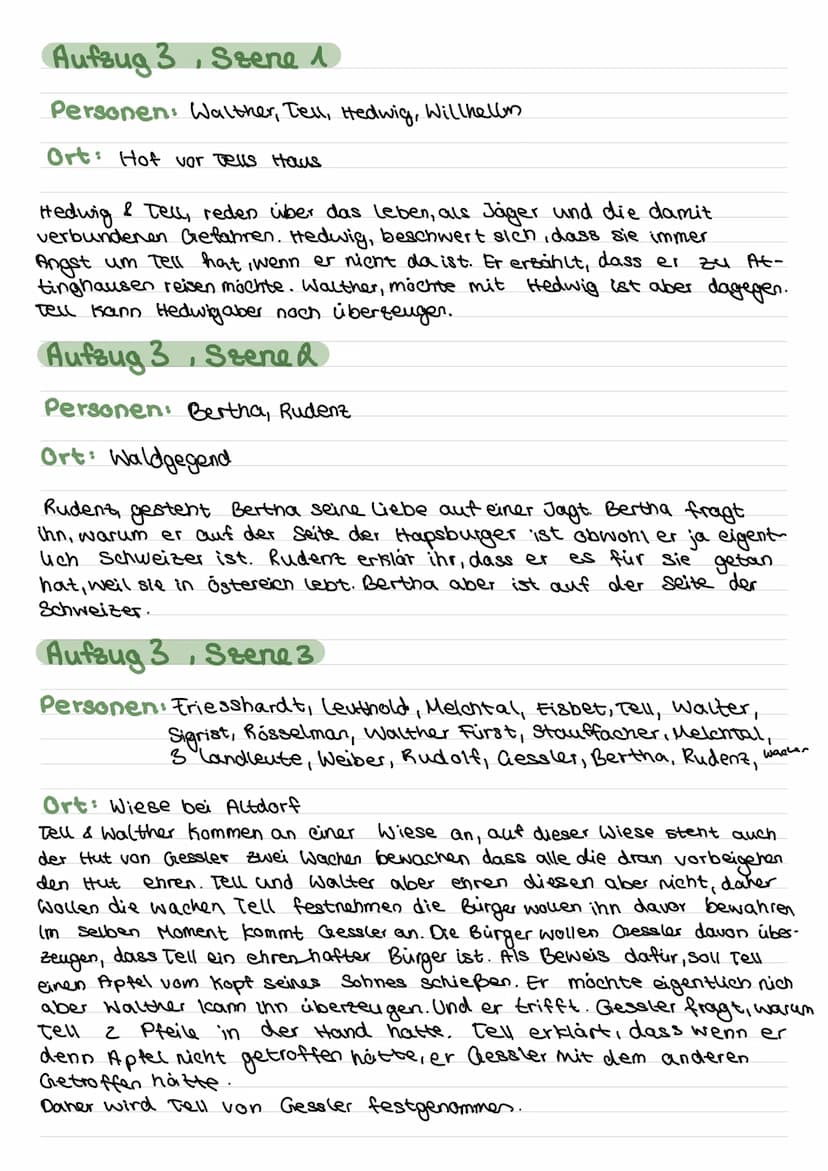 Aufzug 3, Szene 1
Personen: Walther, Tell, Hedwig, Willhelm
Ort: Hof vor Tells Haus
Hedwig & Tell, reden über das Leben, als Jäger und die damit
verbundenen Gefahren. Hedwig, beschwert sich, dass sie immer
Angst um Tell hat, wenn er nicht da ist. Er erzählt, dass er zu At-
tinghausen reisen möchte. Walther, möchte mit Hedwig ist aber dagegen.
Tell kann Hedwig aber noch überzeugen.
Aufzug 3, Szene 2
Personen: Bertha, Rudenz
Ort: Waldgegend
Rudenz, gesteht Bertha seine Liebe auf einer Jagt. Bertha fragt
ihn, warum er auf der Seite der Hapsburger ist obwohl er ja eigent-
lich Schweizer ist. Rudenz erklär ihr, dass er es für sie getan
hat, weil sie in Östereich lebt. Bertha aber ist auf der Seite der
Schweizer.
Aufzug 3, Szene 3
Personen: Friesshardt, Leuthold, Melchtal, Eisbet, Tell, Walter,
Sigrist, Rösselman, Walther Fürst, Stauffacher, Melchtal,
3 Landleute, Weiber, Rudolf, Gessler, Bertha, Rudenz,
Ort: Wiese bei Altdorf
Tell & Walther kommen an einer Wiese an, auf dieser Wiese steht auch
der Hut von Gessler zwei Wachen bewachen dass alle die dran vorbeigehen
den Hut ehren. Tell und Walter aber ehren diesen aber nicht, daher
wollen die wachen Tell festnehmen die Bürger wollen ihn davor bewahren
Im selben Moment kommt Gessler an. Die Bürger wollen Gessler davon über-
zeugen, dass Tell ein ehrenhafter Bürger ist. Als Beweis dafür, soll Tell
einen Apfel vom Kopf seines Sohnes schießen. Er möchte eigentlich nich
aber Walther kann ihn überzeugen. Und er trifft. Gessler fragt, warum
Tell 2 Pfeile in der Hand hatte. Tell erklärt, dass wenn er
denn Apfel nicht getroffen hätte, er Gessler mit dem anderen
Getroffen hätte.
Daher wird Tell von Gessler festgenommen.